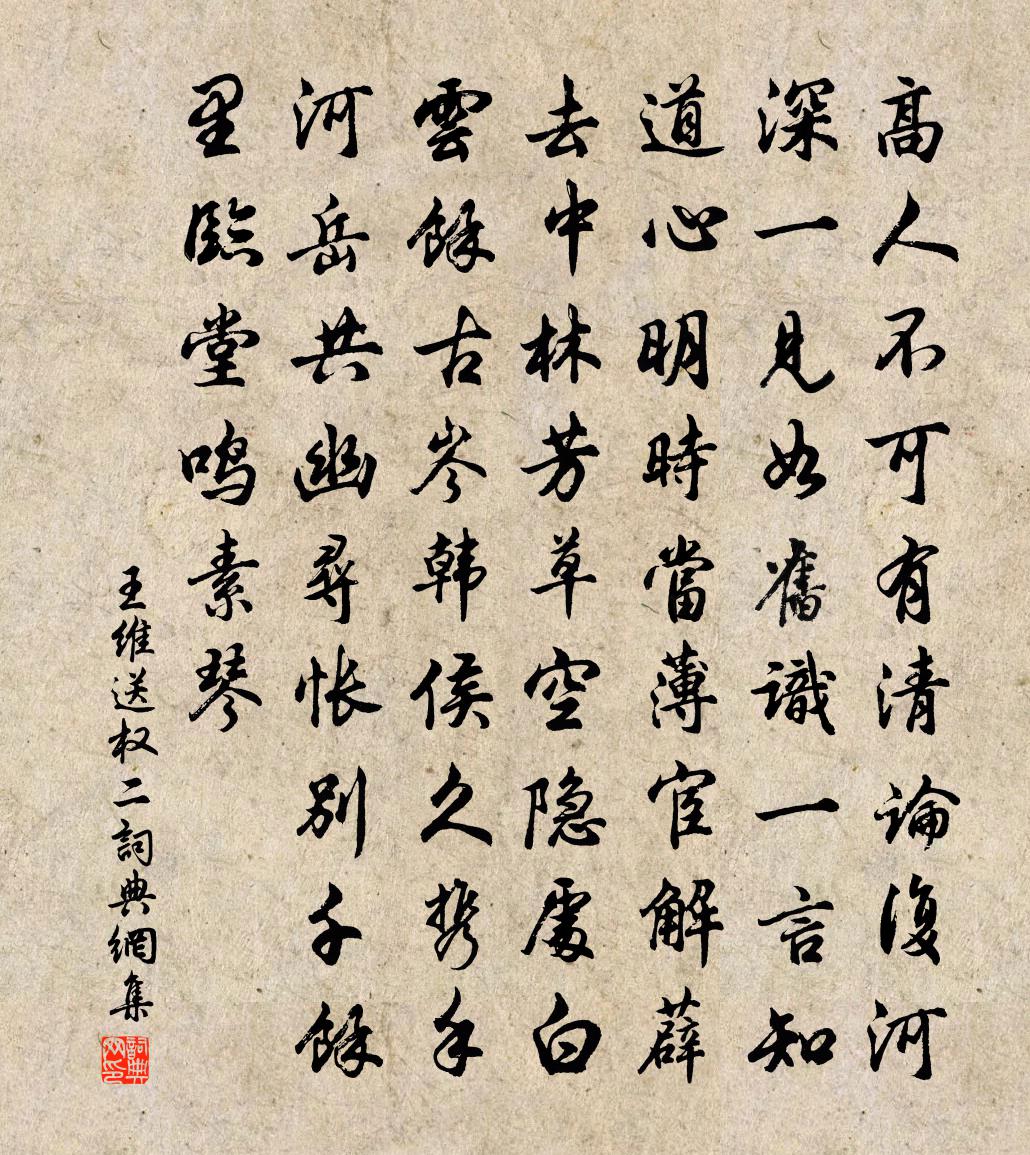 高人不可有清論復河
深一見如舊識一言知
道心明時當薄宦解薜
去中林芳草空隐處白
雲餘古岑韩侯久携手
河岳共幽尋怅别千餘
里臨堂鸣素琴
王維送权二詞典網集
詞典网印